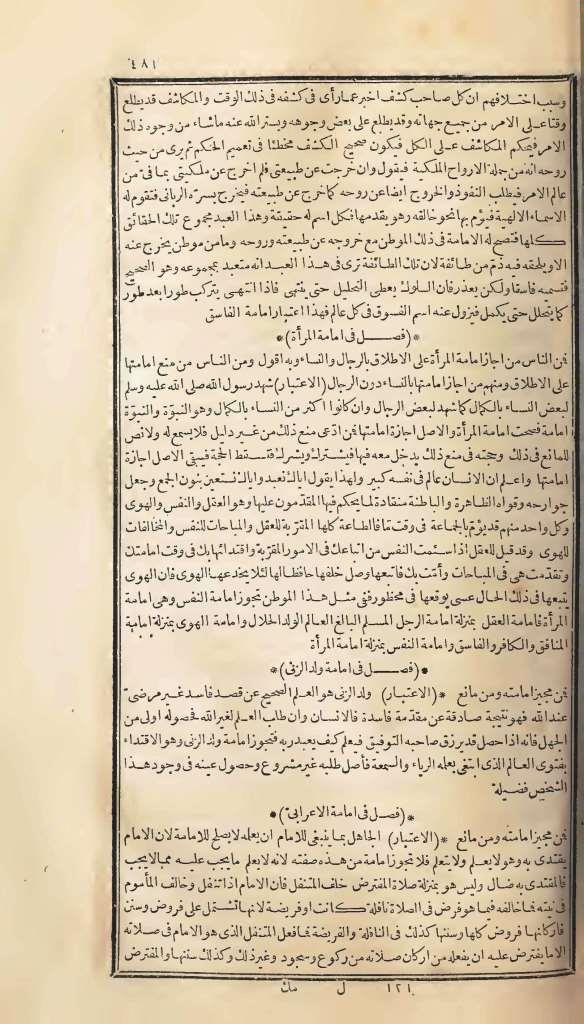 ٤٨١
وسبب اختلافهم ان كل صاحب كشف اخبر عما رأى فى كشفه فى ذلك الوقت والمكاشف قد يطلع
وقتا على الامر من جميع جهاته وقد يطلع على بعض وجوهه ويستر الله عنه ما شاء من وجوه ذلك
الامر فيحكم المكاشف على الكل فيكون صحيح الكشف مخطئا فى تعميم الحكم ثم يرى من حيث
روحه انه من جملة الارواح الملكية فيقول وان خرجت عن طبيعتى فلم اخرج عن ملكيتى بما فى من
عالم الامر فيطلب النفوذ والخروج ايضا عن روحه كما خرج عن طبيعته فيخرج بسره الربانى فتقوم له
الاسماء الالهية فيؤم بها نحو خالقه وهو يقدمها فكل اسم له حقيقة وهذا العبد مجموع تلك الحقائق
كلها فتصح له الامامة فى ذلك الموطن مع خروجه عن طبيعته وروحه وما من موطن يخرج عنه
الا ويلحقه فيه ذم من طائفة لان تلك الطائفة ترى فى هذا العبد انه متعبد بمجموعه وهو الصحيح
فتسميه فاسقا ولكن يعذر فان السلوك يعطى التحليل حتى ينتهى فاذا انتهى يتركب طورا بعد طور
كما يتحلل حتى يكمل فيزول عنه اسم الفسوق فى كل عالم فهذا اعتبار امامة الفاسق
*(فصل فى امامة المرأة)*
فمن الناس من اجاز امامة المرأة على الاطلاق بالرجال والنساء وبه اقول ومن الناس من منع امامتها
على الاطلاق ومنهم من اجاز امامتها بالنساء دون الرجال (الاعتبار) شهد رسول الله صلى الله عليه وسلم
لبعض النساء بالكمال كما شهد لبعض الرجال وان كانوا اكثر من النساء بالكمال وهو النبوّة والنبوّة
امامة فصحت امامة المرأة والاصل اجازة امامتها فمن ادعى منع ذلك من غير دليل فلا يسمع له ولا نص
للمانع فى ذلك وحجته فى منع ذلك يدخل معه فيها فيشترك ويشرك فتسقط الحجة فيبقى الاصل اجازة
امامتها واعلم ان الانسان عالم فى نفسه كبير ولهذا يقول اياك نعبد واياك نستعين بنون الجمع وجعل
جوارحه وقواه الظاهرة والباطنة منقادة لما يحكم فيها المقدّمون عليها وهو العقل والنفس والهوى
وكل واحد منهم قد يؤم بالجماعة فى وقت ما فالطاعة كلها المقرّبة للعقل والمباحات للنفس والمخالفات
للهوى وقد قيل للعقل اذا سئمت النفس من اتباعك فى الامور المقرّبة واقتدائها بك فى وقت امامتك
وتقدمت هى فى المباحات وأمّت بك فاتبعها وصل خلفها حافظا لها لئلا يخدعها الهوى فان الهوى
يتبعها فى ذلك الحال عسى يوقعها فى محظور ففى مثل هذا الموطن تجوز امامة النفس وهى امامة
المرأة فامامة العقل بمنزلة امامة الرجل المسلم البالغ العالم الولد الحلال وامامة الهوى بمنزلة امامة
المنافق والكافر والفاسق وامامة النفس بمنزلة امامة المرأة
*(فصل فى امامة ولد الزنى)*
فمن مجيز امامته ومن مانع *(الاعتبار) ولد الزنى هو العلم الصحيح عن قصد فاسد غير مرضىّ
عند الله فهو نتيجة صادقة عن مقدّمة فاسدة فالانسان وان طلب العلم لغير الله فحصوله اولى من
الجهل فانه اذا حصل قد يرزق صاحبه التوفيق فيعلم كيف يعبد ربه فتجوز امامة ولد الزنى وهو الاقتداء
بفتوى العالم الذى ابتغى بعلمه الرياء والسمعة فأصل طلبه غير مشروع وحصول عينه فى وجود هذا
الشخص فضيلة
*(فصل فى امامة الاعرابى)*
فمن مجيز امامته ومن مانع *(الاعتبار) الجاهل بما ينبغى للامام ان يعلمه لا يصلح للامامة لان الامام
يقتدى به وهو لا يعلم ولا يتعلم فلا تجوز امامة من هذه صفته لانه لا يعلم ما يجب عليه مما لا يجب
فالمقتدى به ضال وليس هو بمنزلة صلاة المفترض خلف المتنفل فان الامام اذا تنفل وخالف المأموم
فى نيته فما خالفه فيما هو فرض فى الصلاة نافلة كانت او فريضة لانها تشتمل على فروض وسنن
فاركانها فروض كلها وسننها كذلك فى النافلة والفريضة فما فعل المتنفل الذى هو الامام فى صلاته
الا ما يفترض عليه ان يفعله من اركان صلاته من ركوع وسجود وغير ذلك وكذلك سننها والمفترض
١٢١ ل مك